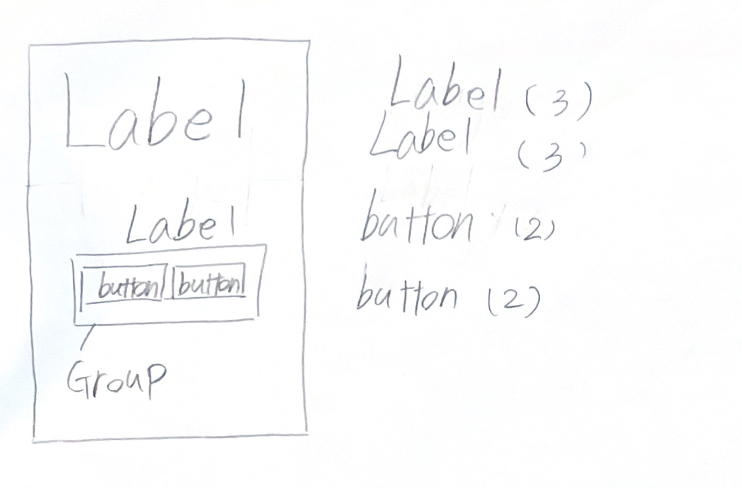 Label
Label
button button
Group
Label (3)
Label (3)
button (2)
button (2)